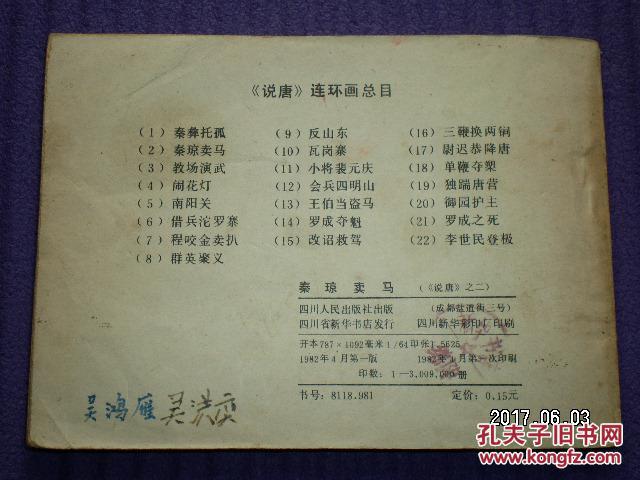 《说唐》连环画总目
(1) 秦彝托孤
(2) 秦琼卖马
(3) 教场演武
(4) 闹花灯
(5) 南阳关
(6) 借兵沱罗寨
(7) 程咬金卖扒
(8) 群英聚义
(9) 反山东
(10) 瓦岗寨
(11) 小将裴元庆
(12) 会兵四明山
(13) 王伯当盗马
(14) 罗成夺魁
(15) 改诏救驾
(16) 三鞭换两锏
(17) 尉迟恭降唐
(18) 单鞭夺槊
(19) 独踹唐营
(20) 御园护主
(21) 罗成之死
(22) 李世民登极
秦琼卖马 (《说唐》之二)
四川人民出版社出版 (成都盐道街三号)
四川省新华书店发行 四川新华彩印厂印刷
开本787×1092毫米 1/64 印张1.5625
1982年4月第一版 1982年4月第一次印刷
印数:1—3,009,000册
书号:8118.981 定价:0.15元
吴鸿雁 吴洪
2017.06.03
孔夫子旧书网
www.kongfz.com